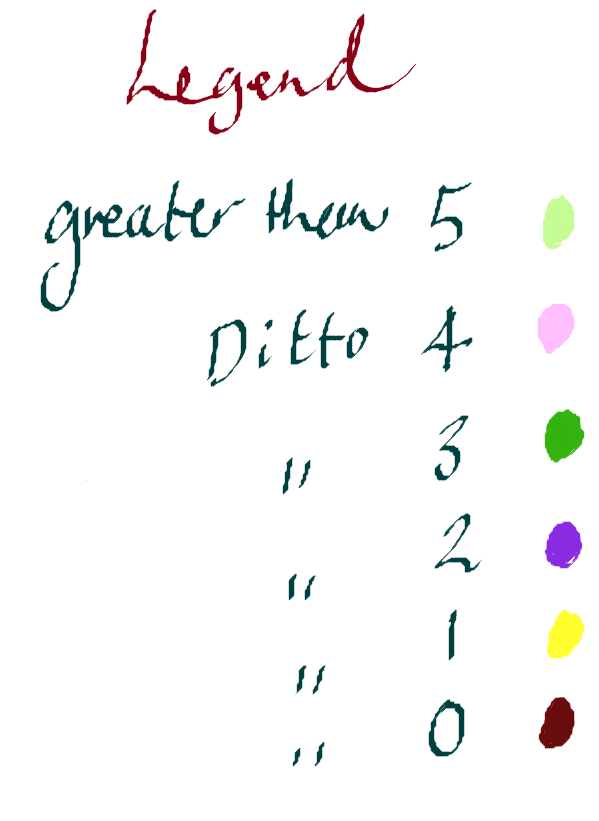 Legend
greater than 5
Ditto 4
" 3
" 2
" 1
" 0